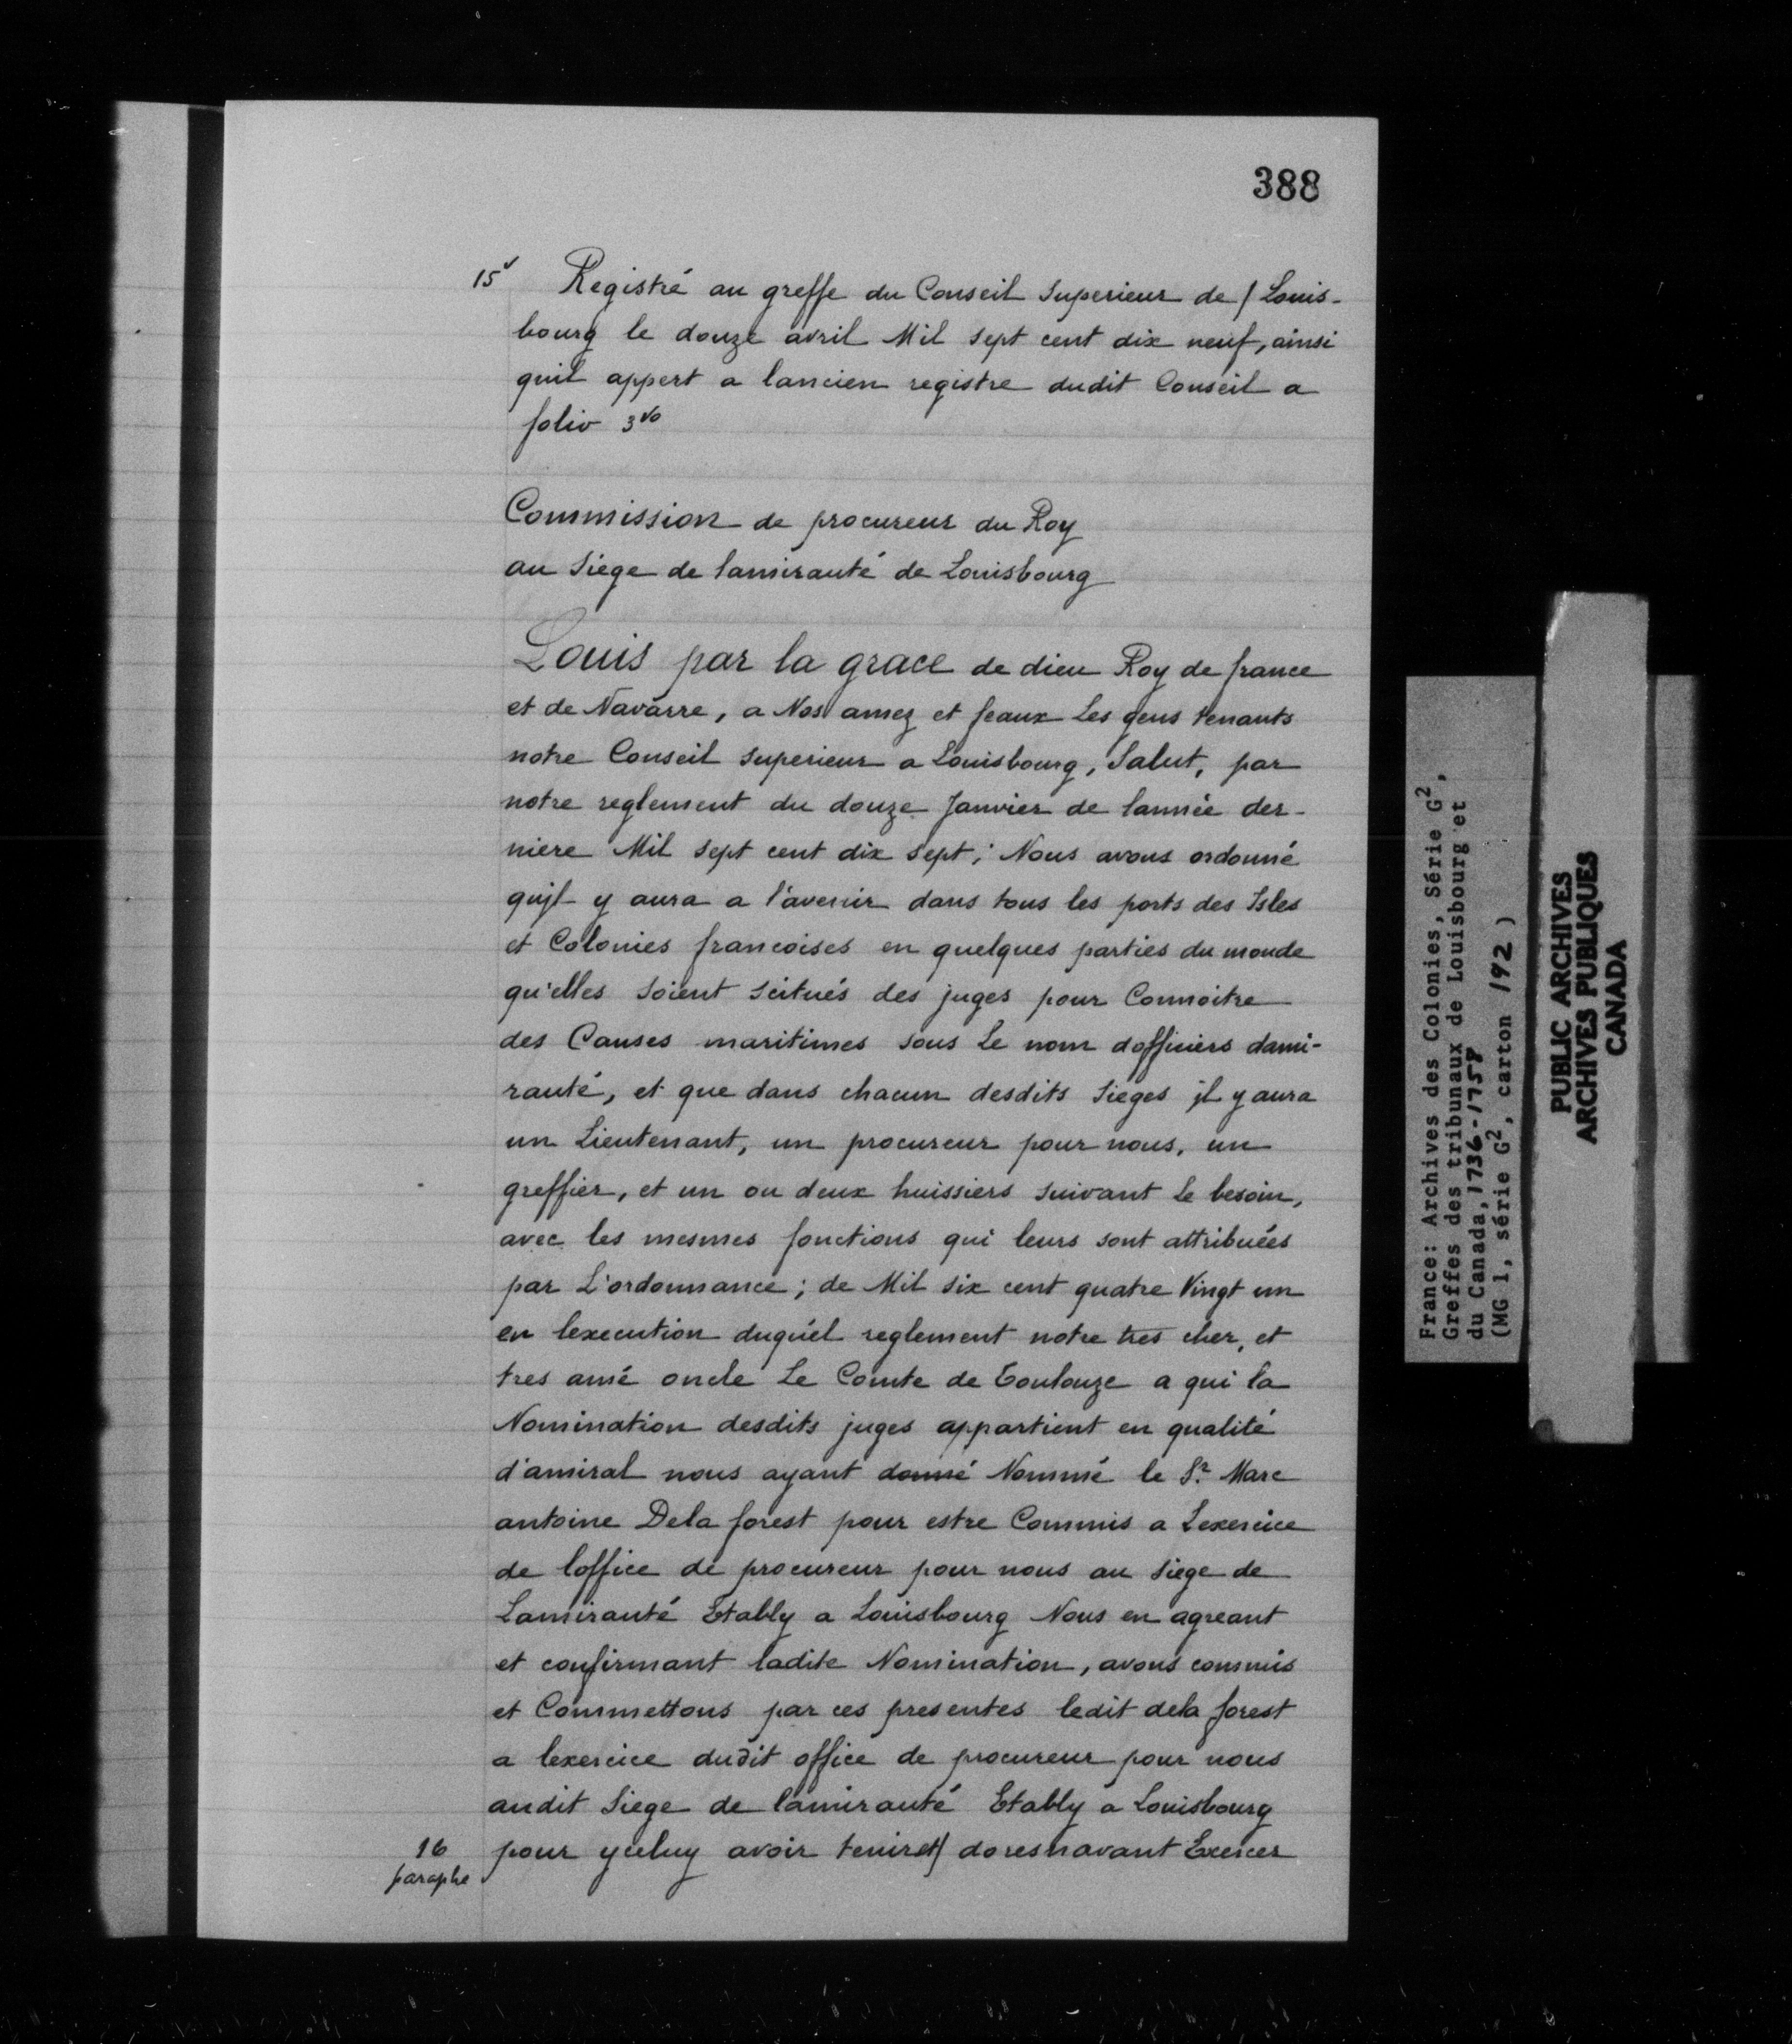 388
15v Registré au greffe du Conseil Superieur de / Louis-
bourg le douze avril Mil sept cent dix neuf, ainsi
quil appert a lancien registre dudit Conseil a
folio 3vo
Commission de procureur du Roy
au Siege de lamirauté de Louisbourg
Louis par la grace de dieu Roy de france
et de Navarre, a Nos amez et feaux Les gens tenants
notre Conseil Superieur a Louisbourg, Salut, par
notre reglement du douze Janvier de lannée der-
niere Mil sept cent dix sept; Nous avons ordonné
qujl y aura a l'avenir dans tous les ports des Isles
et Colonies francoises en quelques parties du monde
qu'elles soient scitués des juges pour Connoitre
des Causes maritimes sous Le nom dofficiers dami-
rauté, et que dans chacun desdits Sieges jl y aura
un Lieutenant, un procureur pour nous, un
greffier, et un ou deux huissiers suivant Le besoin,
avec les mesmes fonctions qui leurs sont attribuées
par L'ordonnance; de Mil six cent quatre Vingt un
en lexecution duquel reglement notre tres cher, et
tres amé oncle Le Comte de Toulouze a qui la
Nomination desdits juges appartient en qualité
d'amiral nous ayant donné Nommé le Sr. Marc
antoine Dela forest pour estre Commis a Lexercice
de loffice de procureur pour nous au Siege de
Lamirauté Etably a Louisbourg Nous en agreant
et confirmant ladite Nomination, avons commis
et Commettons par ces presentes ledit dela forest
a lexercice dudit office de procureur pour nous
audit Siege de lamirauté Etably a Louisbourg
16 pour yceluy avoir tenir et/ doresnavant Exercer
paraphe
France: Archives des Colonies, Série G2,
Greffes des tribunaux de Louisbourg et
du Canada, 1736-1758
(MG 1, série G2, carton 192)
PUBLIC ARCHIVES
ARCHIVES PUBLIQUES
CANADA